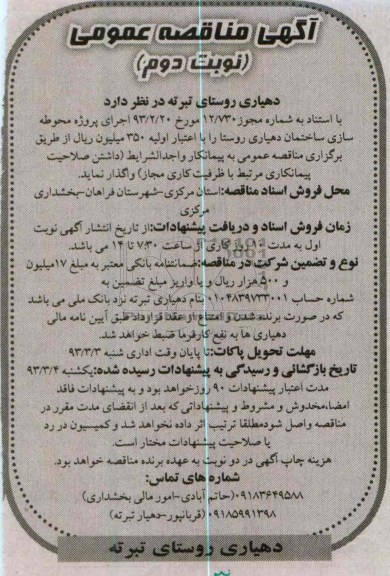 آگهی مناقصه عمومی
(نوبت دوم)
دهیاری روستای تبرته در نظر دارد
با استناد به شماره مجوز ۱۲/۷۳۰ مورخ ۹۳/۲/۲۰ اجرای پروژه محوطه
سازی ساختمان دهیاری روستا را با اعتبار اولیه ۳۵۰ میلیون ریال از طریق
برگزاری مناقصه عمومی به پیمانکار واجدالشرایط (داشتن صلاحیت
پیمانکاری مرتبط با ظرفیت کاری مجاز) واگذار نماید.
محل فروش اسناد مناقصه:استان مرکزی-شهرستان فراهان-بخشداری
مرکزی
زمان فروش اسناد و دریافت پیشنهادات:از تاریخ انتشار آگهی نوبت
اول به مدت ۱۰ روز کاری از ساعت ۷:۳۰ تا ۱۴ می باشد.
نوع و تضمین شرکت در مناقصه:ضمانتنامه بانکی معتبر به مبلغ ۱۷میلیون
و ۵۰۰هزار ریال و یا واریز مبلغ تضمین به
شماره حساب ۰۱۰۴۸۳۹۷۳۳۰۰۱ بنام دهیاری تبرته نزد بانک ملی می باشد
که در صورت برنده شدن و امتناع از عقد قرارداد طبق آیین نامه مالی
دهیاری ها به نفع کارفرما ضبط خواهد شد.
مهلت تحویل پاکات:تا پایان وقت اداری شنبه ۹۳/۳/۳
تاریخ بازگشائی و رسیدگی به پیشنهادات رسیده شده:یکشنبه ۹۳/۳/۴
مدت اعتبار پیشنهادات ۹۰ روزخواهد بود و به پیشنهادات فاقد
امضا،مخدوش و مشروط و پیشنهاداتی که بعد از انقضای مدت مقرر در
مناقصه واصل شودمطلقا ترتیب اثر داده نخواهد شد و کمیسیون در رد
یا صلاحیت پیشنهادات مختار است.
هزینه چاپ آگهی در دو نوبت به عهده برنده مناقصه خواهد بود.
شماره های تماس:
۰۹۱۸۳۶۴۹۵۸۸(حاتم آبادی-امور مالی بخشداری)
۰۹۱۸۵۹۹۱۳۹۸ (قربانپور-دهیار تبرته)
دهیاری روستای تبرته